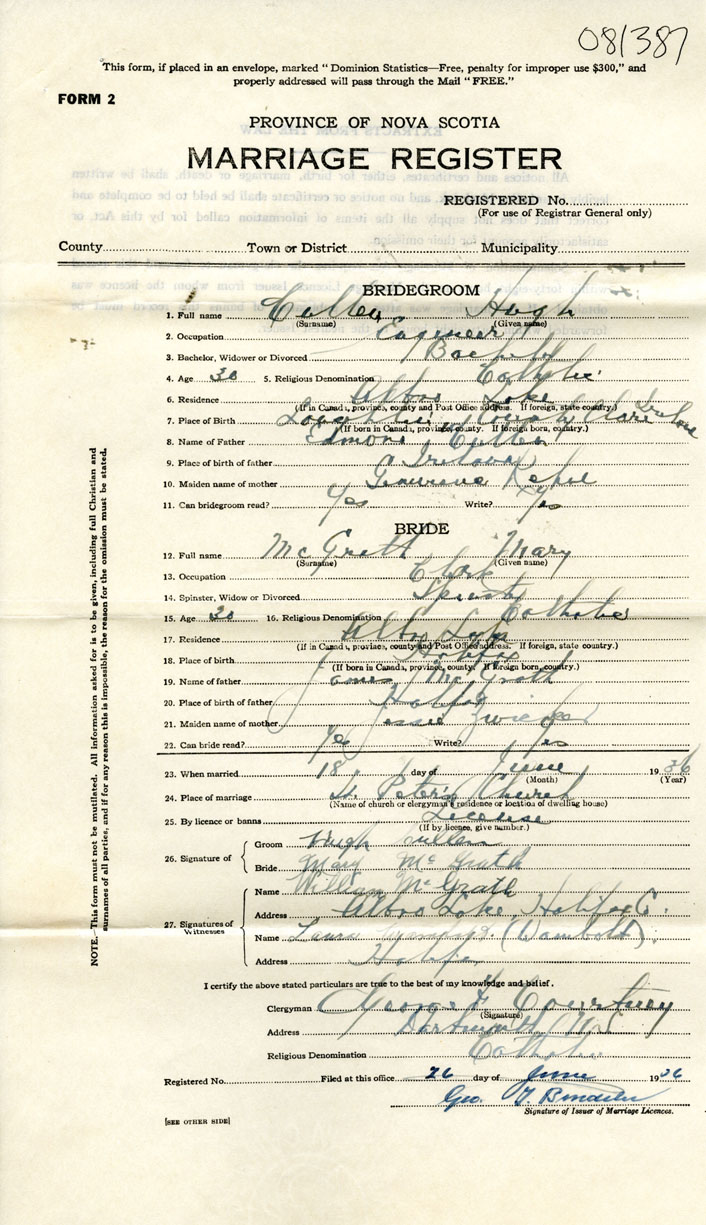 081387
This form, if placed in an envelope, marked "Dominion Statistics—Free, penalty for improper use $300," and
properly addressed will pass through the Mail "FREE."
FORM 2
PROVINCE OF NOVA SCOTIA
MARRIAGE REGISTER
REGISTERED No.
(For use of Registrar General only)
County Town or District Municipality
BRIDEGROOM
1. Full name Cullen Hugh
(Surname) (Given name)
2. Occupation Engineer
3. Bachelor, Widower or Divorced Bachelor
4. Age 30 5. Religious Denomination Catholic
6. Residence Albro Lake
(If in Canada, province, county and Post Office address. If foreign, state country.)
7. Place of Birth County Clare Ireland
(If born in Canada, province, county. If foreign born, country.)
8. Name of Father Edmond Cullen
9. Place of birth of father Ireland
10. Maiden name of mother
11. Can bridegroom read? Yes Write? Yes
BRIDE
12. Full name McGrath Mary
(Surname) (Given name)
13. Occupation Clerk
14. Spinster, Widow or Divorced Spinster
15. Age 30 16. Religious Denomination Catholic
17. Residence Albro Lake
(If in Canada, province, county and Post Office address. If foreign, state country.)
18. Place of birth Halifax
(If born in Canada, province, county. If foreign born, country.)
19. Name of father James McGrath
20. Place of birth of father Halifax
21. Maiden name of mother Jessie
22. Can bride read? Yes Write? Yes
23. When married 18 day of June 1936
(Month) (Year)
24. Place of marriage St. Peter's Church
(Name of church or clergyman's residence or location of dwelling house)
25. By licence or banns License
(If by licence, give number.)
26. Signature of Groom Hugh Cullen
Bride Mary McGrath
27. Signatures of Witnesses Name William McGrath
Address Albro Lake, Halifax C.
Name Laura (Dambold)
Address Halifax
I certify the above stated particulars are true to the best of my knowledge and belief.
Clergyman George F. Courtney
(Signature)
Address Dartmouth N.S.
Religious Denomination Catholic
Registered No. Filed at this office 26 day of June 1936
Geo.
Signature of Issuer of Marriage Licences.
[SEE OTHER SIDE]
NOTE.—This form must not be mutilated. All information asked for is to be given, including full Christian and
surnames of all parties, and if for any reason this is impossible, the reason for the omission must be stated.